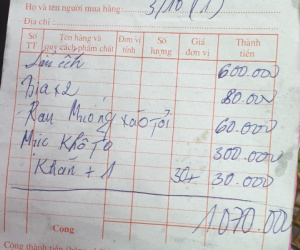 Họ và tên người mua hàng : 3/10 (1)
Địa chỉ :
Số TT Tên hàng và quy cách phẩm chất Đơn vị tính Số lượng Giá đơn vị Thành tiền
Lẩu ếch 600.000
Bia x2 80.000
Rau Muống xào Tỏi 60.000
Mực Khô To 300.000
Khăn + 1 30.000
Cộng 1070.00
Cộng thành tiền